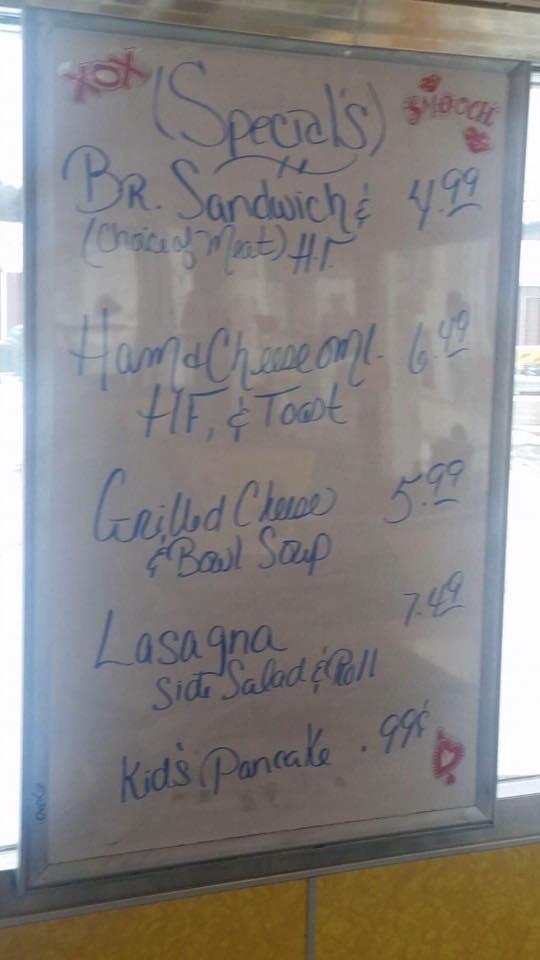 XOX
(Special's)
SMOOCH
Br. Sandwich & 4.99
(Choice of Meat) H.F.
Ham & Cheese oml. 6.49
HF, & Toast
Grilled Cheese 5.99
& Bowl Soup
Lasagna 7.49
Side Salad & Roll
Kid's Pancake .99¢